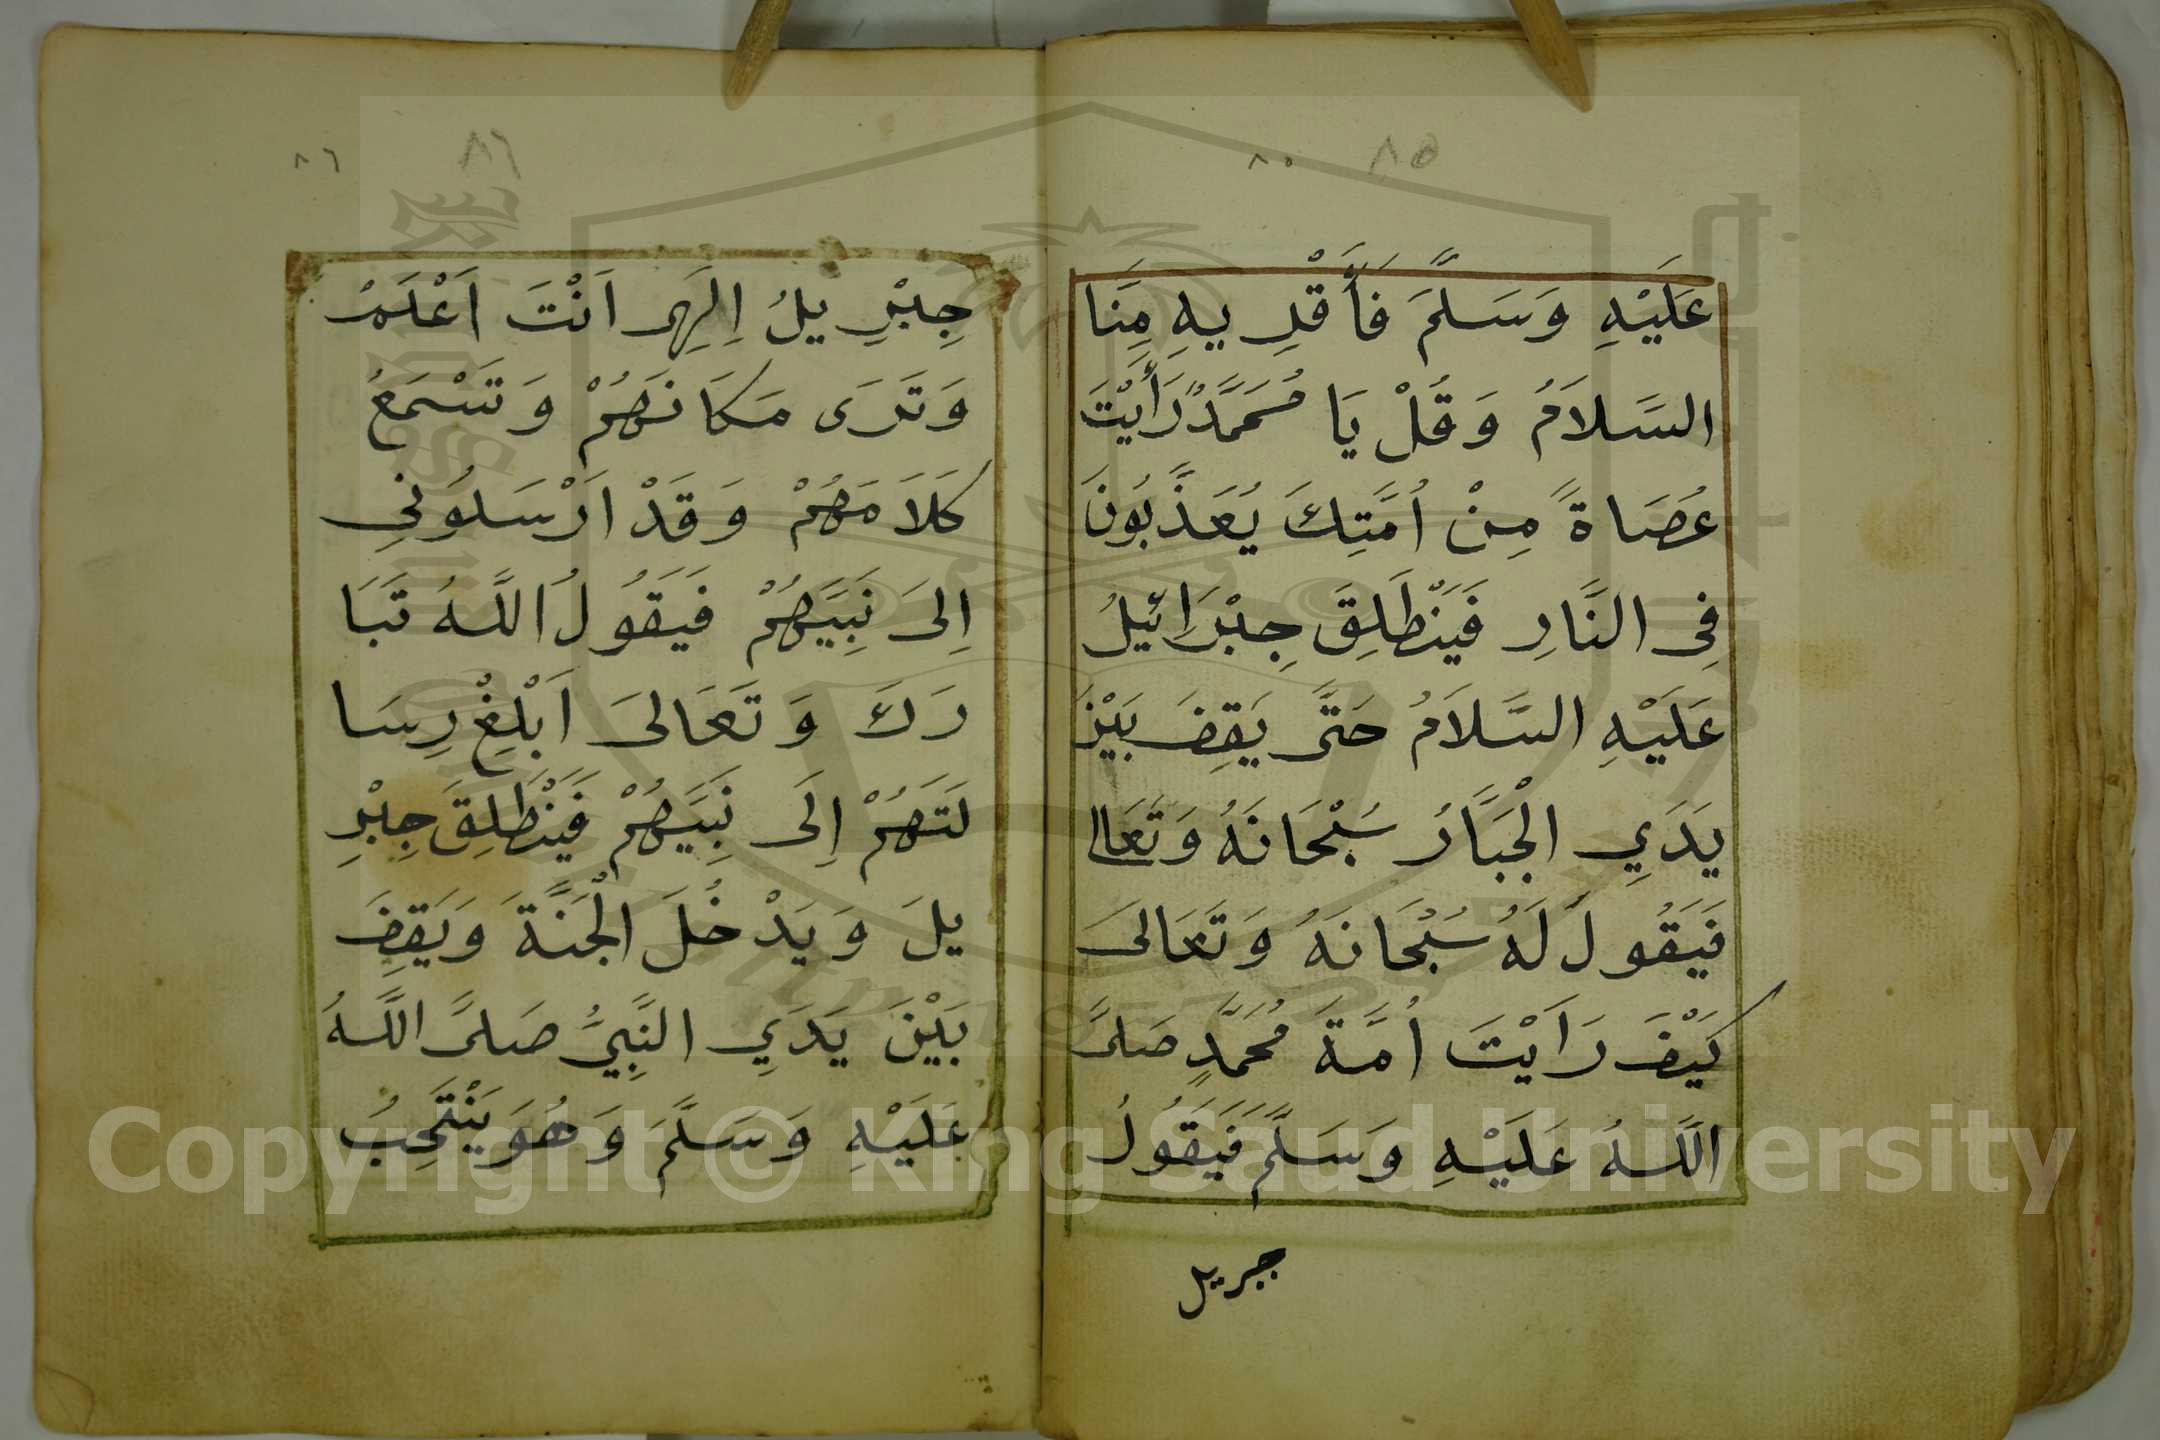 ٨٥ ٨٥
عَلَيْهِ وَسَلَّمَ فَأَقْرِيهِ مِنَا
السَّلاَمُ وَقُلْ يَا مُحَمَّدً رَأَيْتَ
عُصَاةً مِنْ اُمَّتِكَ يُعَذَّبُونَ
فِى النَّارِ فَيَنْطَلِقَ جِبْرَائِيلُ
عَلَيْهِ السَّلاَمُ حَتَّى يَقِفَ بَيْنَ
يَدَيِ الْجَبَّارُ سُبْحَانَهُ وَتَعَالا
فَيَقُولَ لَهُ سُبْحَانَهُ وَتَعَالىَ
كَيْفَ رَاَيْتَ اُمَّةَ مُحَمَّدٍ صَلىَّ
اللَّهُ عَلَيْهِ وَسَلَّمَ فَيَقُولُ
جبريل
٨٦ ٨٦
جِبْرِيلُ اِلَهِى اَنْتَ اَعْلَمُ
وَتَرَى مَكَانَهُمْ وَتَسْمَعُ
كَلاَمَهُمْ وَقَدْ اَرْسَلوُنِي
اِلىَ نَبِيَّهُمْ فَيَقُولُ اللَّهُ تَبَا
رَكَ وَتَعَالىَ اَبْلِغْ رِسَا
لَتَهُمْ اِلَى نَبِيَّهُمْ فَيَنْطَلِقَ جِبْرِ
يلَ وَيَدْخُلَ الْجَنَّةَ وَيَقِفَ
بَيْنَ يَدَيِ النَّبِيُّ صَلىَّ اللَّهُ
عَلَيْهِ وَسَلَّمَ وَهُوَ يَنْتَحِبُ
Copyright © King Saud University